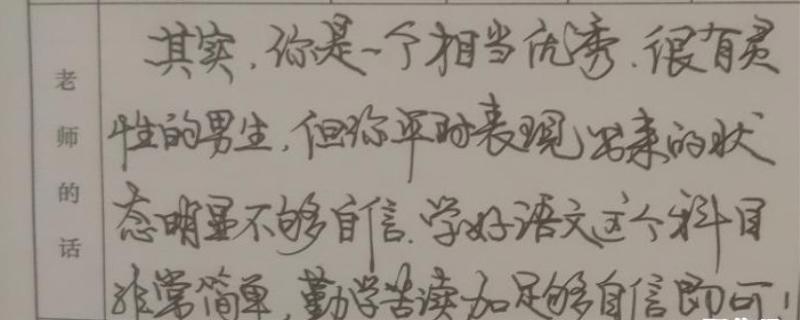 老师的话
其实,你是一个相当优秀.很有灵
性的男生,但你平时表现出来的状
态明显不够自信.学好语文这个科目
非常简单,勤学苦读加足够自信即可!